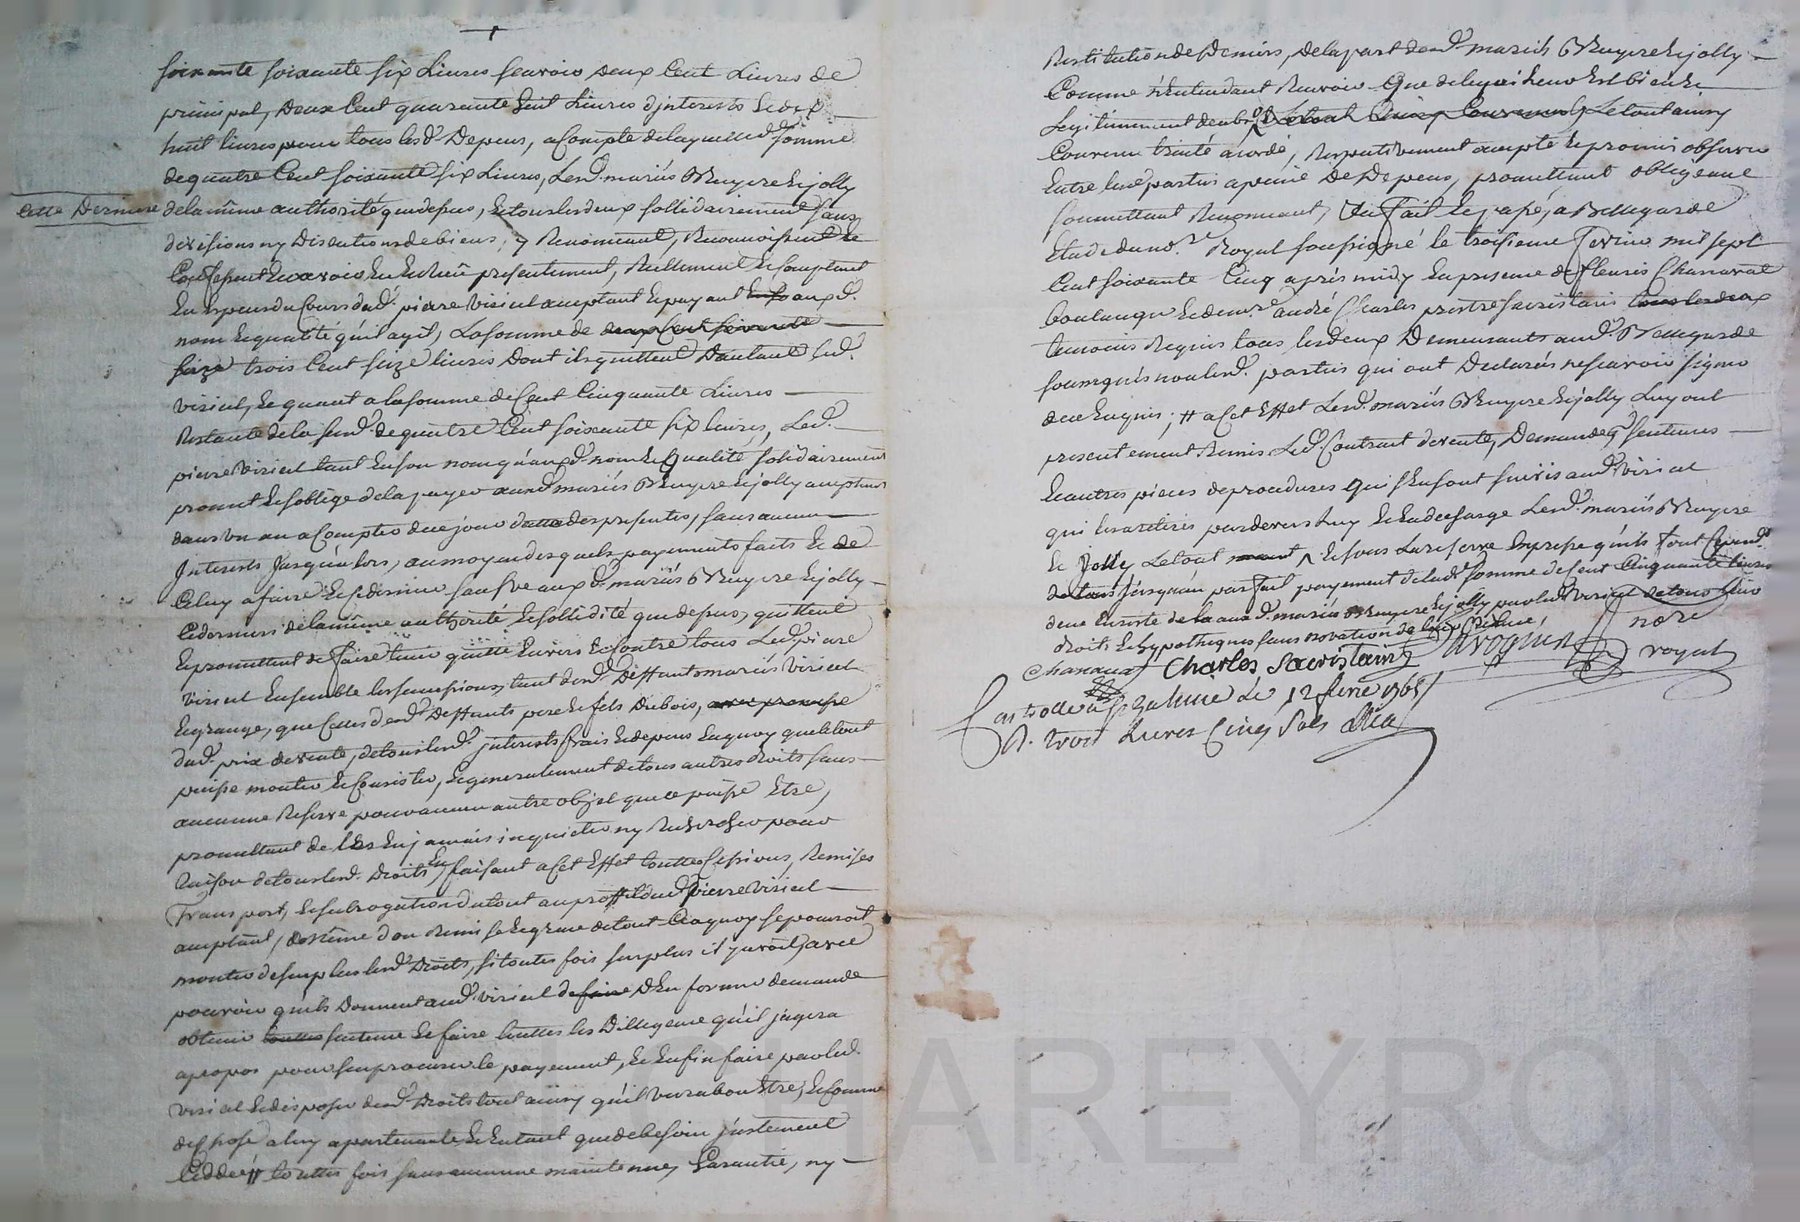 soixante soixante six Livres scavoir deux Cent Livres de
principal, deux Cent quarante huit Livres d'interests Et dix
huit livres pour tous lesd. Depens, a Compte de laquelle d. somme
de quatre Cent soixante six Livres, Lesd. mariés Bruyere Et jolly
Cette Derniere de la même authorité que depus, Et tous les deux sollidairement sans
divisions ny Discutions de biens, y Renoncent, Reconnoissent
Confessent avoir Eu Et Receu presentement, Reellement Et Comptant
En Especes du Cours dud. pierre Virieut acceptant Et payant auxd.
nom Et qualité qu'il agit, La somme de deux Cent soixante
seize trois Cent seize livres dont ils quittent d'autant led.
Virieut, Et quant a la somme de Cent Cinquante Livres
Restante de la susd. de quatre Cent soixante six livres, Led.
pierre Virieut tant En son nom qu'auxd. nom Et Qualité solidairement
promet Et s'oblige de la payer auxd. mariés Bruyere Et jolly acceptant
dans un an a Compter de ce jour datte des presentes, sans aucun
Interests Jusqu'alors, au moyen desquels payements faits Et de
Celuy a faire Et Ce dernier sauf ve auxd. mariés Bruyere Et jolly
Ce dernier de la même authorité Et sollidité que depus, quittent
Et promettent de faire tenir quitte Envers Et Contre tous Led. pierre
Virieut Ensemble les successions, tant desd. Deffunts mariés Virieut
Et grange, que Celles desd. Deffunts pere Et fils Dubois,
dud. prix de vente, de tous lesd. interests frais Et depens En quoy que le tout
puisse monter Et Consister, Et generalement de tous autres droits sans
aucune Reserve pour aucun autre objet que ce puisse Etre,
promettant de les En jamais inquieter ny Rechercher pour
Raison de tous lesd. Droits, En faisant a Cet Effet toutte Cessions, Remises
Transport, Et subrogation du tout au proffit dud. pierre Virieut
acceptant, de même d'ou Remise Et grace de tout Ce a quoy se pouroit
monter de surplus lesd. Droits, si toutes fois surplus il y avoit, avec
pouvoir qu'ils donnent aud. Virieut de faire d'En former demande
obtenir touttes sentence Et faire touttes les Dilligence qu'il jugera
apropos pour s'en procurer le payement, Et Enfin faire par led.
Virieut Et disposer desd. Droits tout ainsy qu'il Verra bon Etre, Et Comme
de Chose a luy apartenante Et En tant que de besoin justement
Ceddée, touttes fois sans aucune maintenue, Garantie, ny
Restitution de Deniers, de la part desd. mariés Bruyere Et jolly
Comme n'Entendant Recevoir que de Ce qui leur Est bien Et
Legitimement deub, Le tout ainsy
Convenu traité acordé, Respectivement accepté Et promis observer
Entre lesd. parties a peine de Depens, promettant obligeant
soumettant Renonceant, &a fait Et passé, a Bellegarde
Etude du nore. Royal soussigné le troisieme fevrier mil sept
Cent soixante Cinq aprés midy En presence de fleuris Chanavat
boulanger Et de mre. andré Charles prestre sacristain tous les deux
temoins Requis tous les deux Demeurants aud. Bellegarde
soussignés non lesd. parties qui ont Declarés ne scavoir signer
de ce Enquis; # a Cet Effet Lesd. mariés Bruyere Et jolly Luy ont
presentement Remis Led. Contract de vente, Demande, sentences
Et autres pieces de procedures qui s'En sont suivis aud. Virieut
qui les a Retirés pardevers Luy Et En decharge Lesd. mariés Bruyere
Et Jolly Le tout Et sous La reserve Expresse qu'ils font Cepend.
jusqu'au parfait payement de lad. somme de Cent Cinquante livres
deue En reste de la auxd. mariés Bruyere Et jolly par led. Virieut de tous leurs
droits Et hypotheques sans novation
Chanavat Charles Sacristain nore
royal
Controllé a St Galmier Le 12 fevrier 1765
R. trois Livres Cinq Sols
CHAREYRON